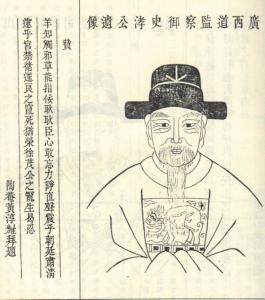 廣西道監察御史淳公遺像
贊
羊知觸邪草能指佞耿耿臣心敢忘力諍直聲震乎朝廷肅清
遠乎宮禁循遂良之
死猶榮徐茂公之
生易忍
陶菴黃淳耀拜題